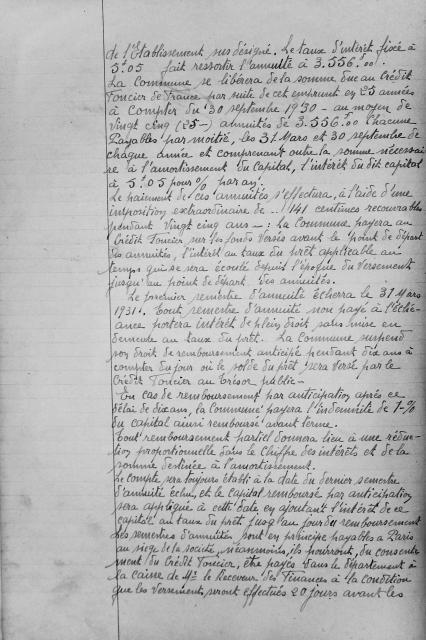 de l'Etablissement sus désigné. Le taux d'intérêt fixée à
5.05 fait ressortir l'annuité à 3.556.00.
La Commune se libérera de la somme due au Crédit
Foncier de France par suite de cet emprunt en 25 années
à compter du 30 septembre 1930 - au moyen de
vingt cinq (25-) annuités de 3.556.00 chacune
Payables par moitié, les 31 Mars et 30 septembre de
chaque année et comprenant outre la somme nécessai
re à l'amortissement du Capital, l'intérêt du dit capital
à 5.05 pour % par an.
Le paiement de ces annuités s'effectura, à l'aide d'une
imposition extraordinaire de 141 centimes recouvrables
pendant vingt cinq ans - : La Commune payera au
Crédit Foncier sur les fonds versés avant le point de départ
des annuités, l'intérêt au taux du prêt applicable au
temps qui se sera écoulé depuis l'époque du versement
jusqu'au point de départ des annuités.
Le premier semestre d'annuité écherra le 31 Mars
1931. Tout semestre d'annuité non payé à l'éché-
ance portera intérêt de plein droit sans mise en
demeure au taux du prêt. La Commune suspend
son droit de remboursement anticipé pendant dix ans à
compter du jour où le solde du prêt sera versé par le
Crédit Foncier au Trésor public -
En cas de remboursement par anticipation après ce
délai de dix ans, la Commune payera l'indemnité de 1-%
du capital ainsi remboursé avant terme.
Tout remboursement partiel donnera lieu à une réduc-
tion proportionnelle dans le Chiffre des intérêts et de la
somme destinée à l'amortissement.
Le compte sera toujours établi à la date du dernier semestre
d'annuité échu, et le capital remboursé par anticipation
sera appliqué à cette date en ajoutant l'intérêt de ce
capital au taux du prêt jusqu'au jour du remboursement
Les semestres d'annuités sont en principe payables à Paris
au siège de la société, néanmoins, ils pourront, du consente
ment du Crédit Foncier, être payés dans le département à
la caisse de Mr le Receveur des Finances à la condition
que les versements seront effectués 20 jours avant les